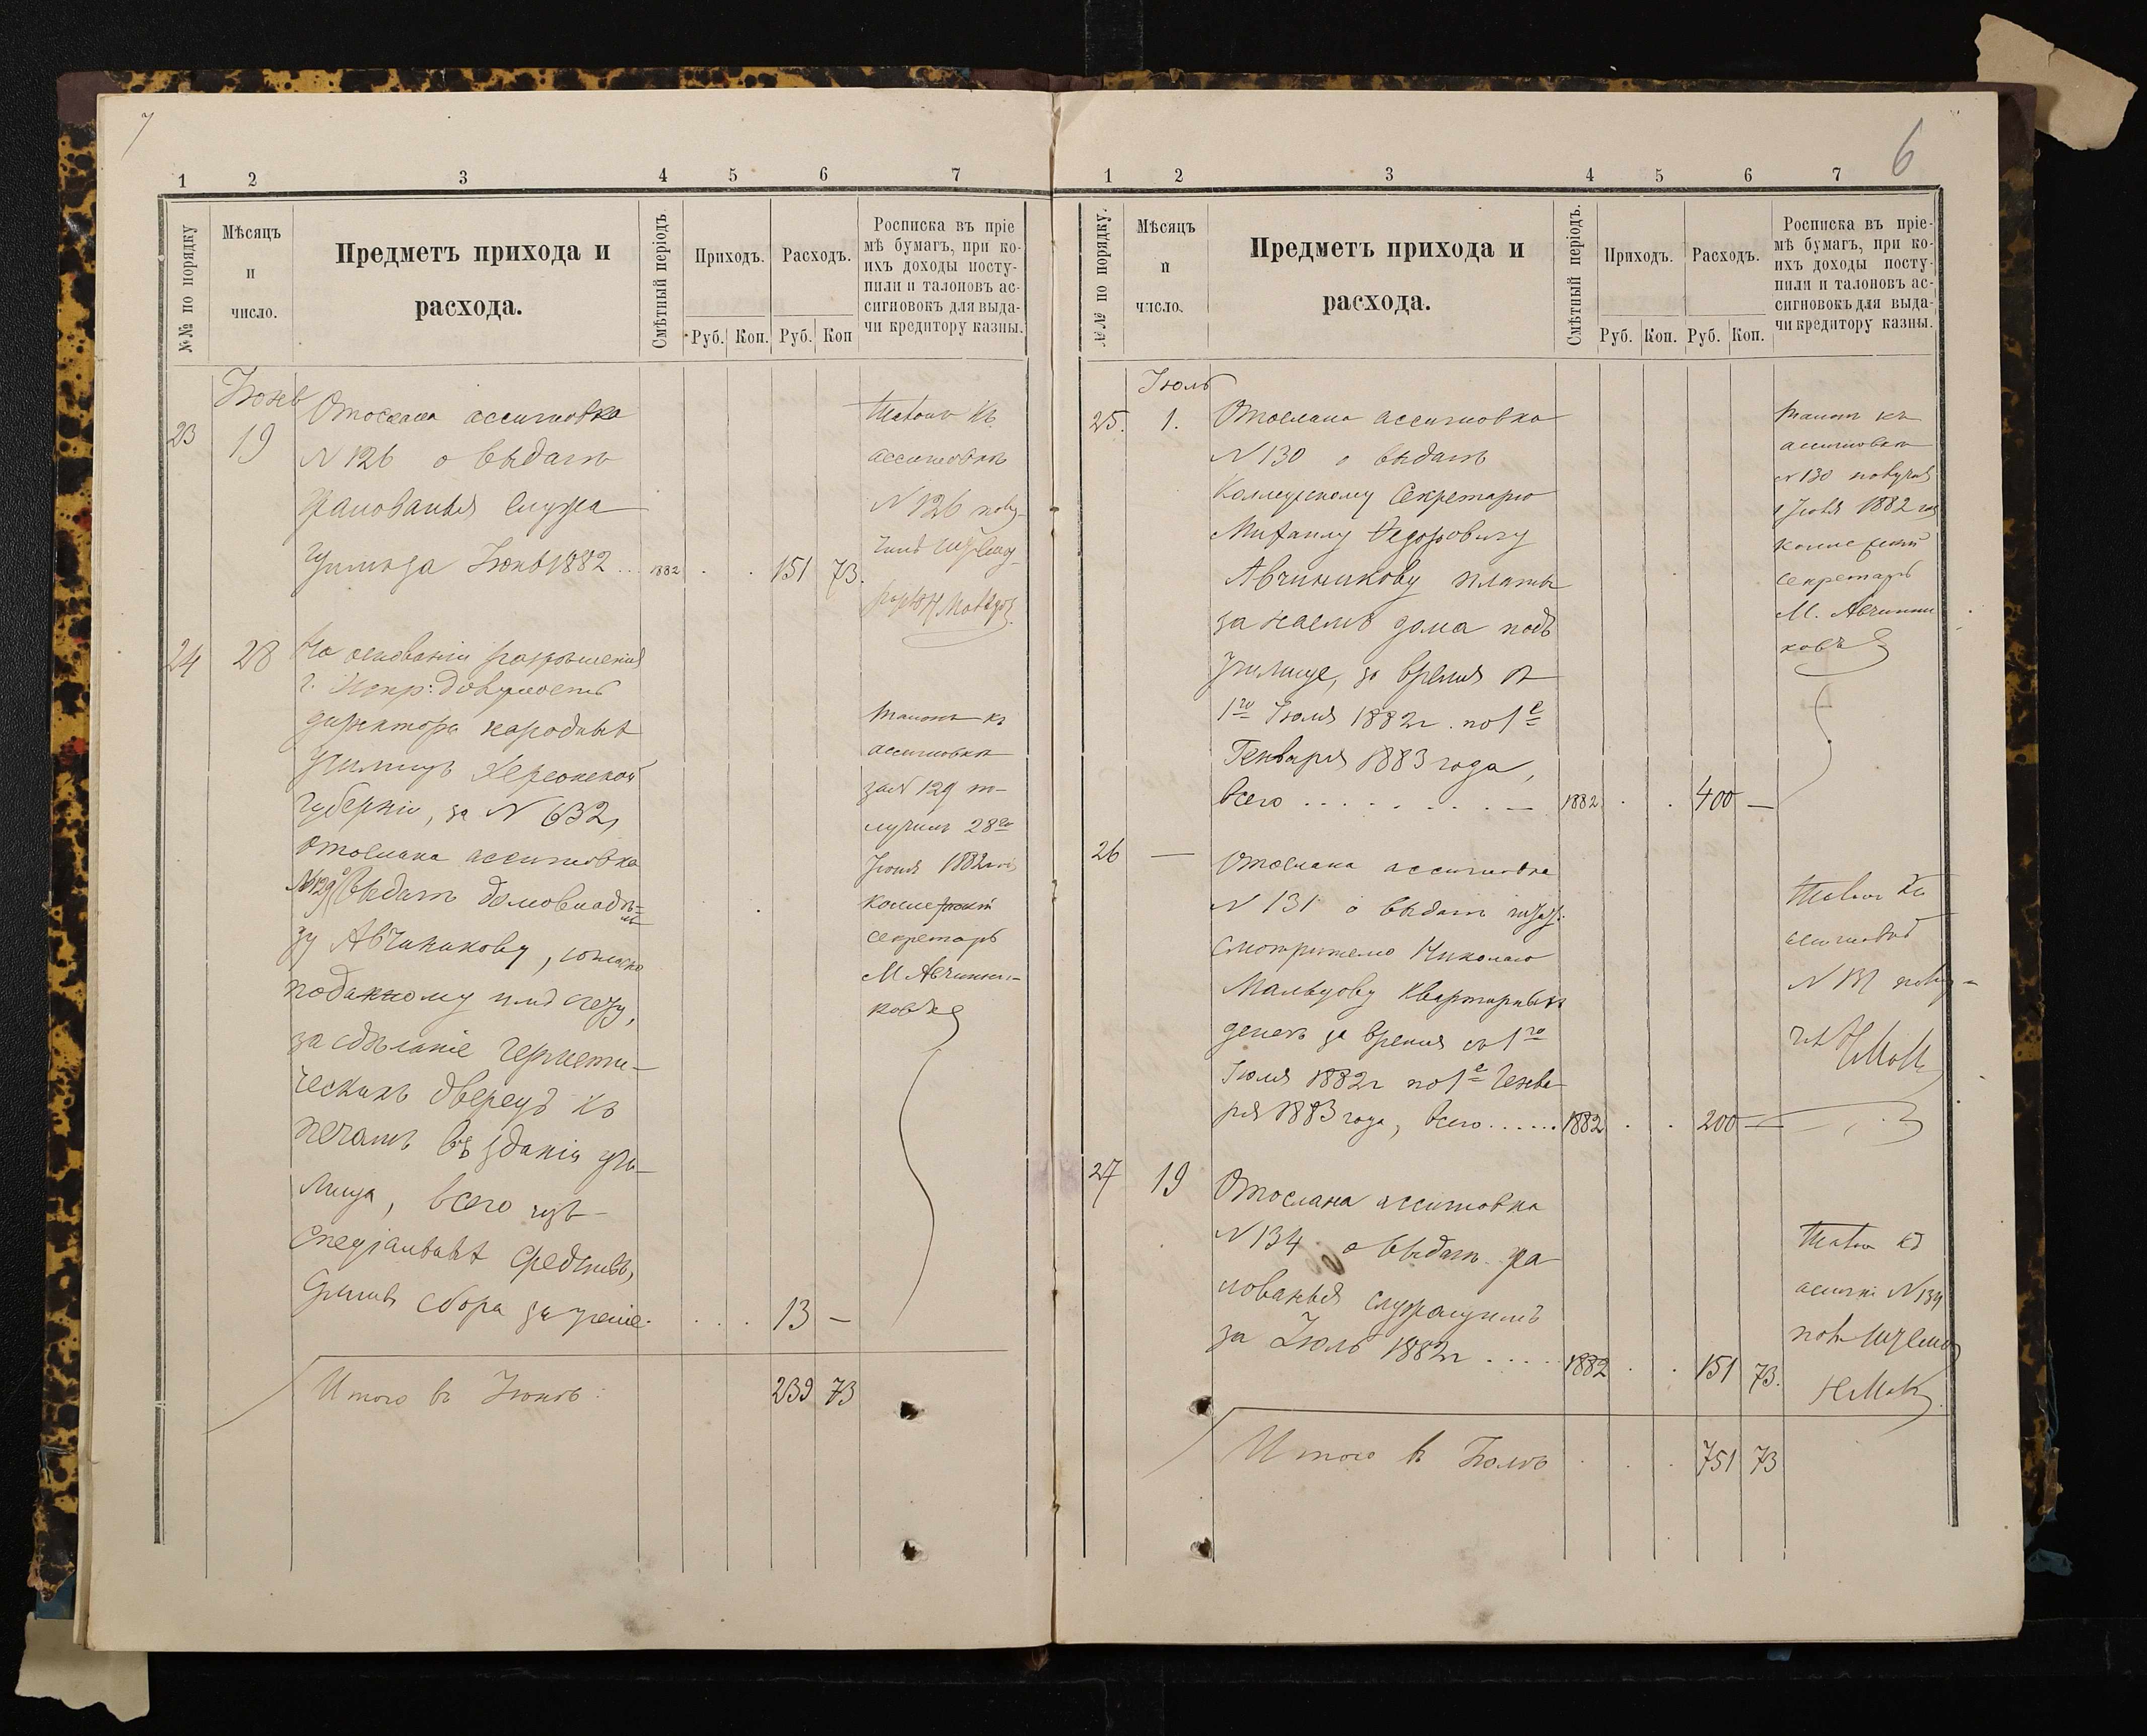 7
1 2 3 4 5 6 7
№№ по порядку
Мѣсяцъ
и
число.
Предметъ прихода и
расхода.
Смѣтный періодъ.
Приходъ. Расходъ.
Руб. Коп. Руб. Коп
Росписка въ пріе
мѣ бумагъ, при ко-
ихъ доходы посту-
пили и талоновъ ас-
сигновокъ для выда-
чи кредитору казны.
Іюнь
23 19 Отослана ассигновка
N 126 о выдачѣ
жалованья служа
за Іюнь 1882 ... 1882 151 73.
Талонъ къ
ассигновкѣ
N 126 полу-
чилъ
24 28 На основаніи разрѣшенія
г. Испр: должность
директора народныхъ
Училищъ Херсонской
Губерніи, за N 632,
отослана ассигновка
N129 о выдачѣ домовладѣ=
Авчиникову, согласно
поданному имъ счету,
за сдѣланіе гермети-
ческихъ дверецъ къ
печамъ въ зданіи учи-
лища, всего изъ
спеціальныхъ средствъ,
сбора за ученіе. 13 —
талонъ къ
ассигновкѣ
за N 129 по-
лучилъ 28го
Іюня 1882
коллежскій
секретарь
М Авчинни-
ковъ
Итого въ Іюнѣ 239 73
6
1 2 3 4 5 6 7
№№ по порядку.
Мѣсяцъ
и
число.
Предметъ прихода и
расхода.
Смѣтный періодъ.
Приходъ. Расходъ.
Руб. Коп. Руб. Коп.
Росписка въ пріе-
мѣ бумагъ, при ко-
ихъ доходы посту-
пили и талоновъ ас-
сигновокъ для выда-
чи кредитору казны.
Іюль
25. 1. Отослана ассигновка
N 130 о выдачѣ
Коллежскому Секретарю
Михаилу Ѳедоровичу
Авчинникову платы
за наемъ дома подъ
училище, за время съ
1го Іюля 1882 г. по 1е
Генваря 1883 года,
всего . . . . . . . — 1882 400 —
талонъ къ
ассигновкѣ
N 130 получилъ
1 Іюля 1882 года
коллежскій
секретарь
М. Авчинни
ковъ
26 — Отослана ассигновка
N 131 о выдачѣ
смотрителю Николаю
Мальцову квартирныхъ
денегъ за время съ 1го
Іюля 1882 г по 1е Генва-
ря 1883 года, всего ...... 1882 200 —
Талонъ къ
N 131 полу-
чилъ
27 19 Отослана ассигновка
N 134 о выдачѣ жа
лованья служащимъ
за Іюль 1882 г .... 1882 151 73.
Талонъ къ
N 134
Итого въ Іюлѣ 751 73